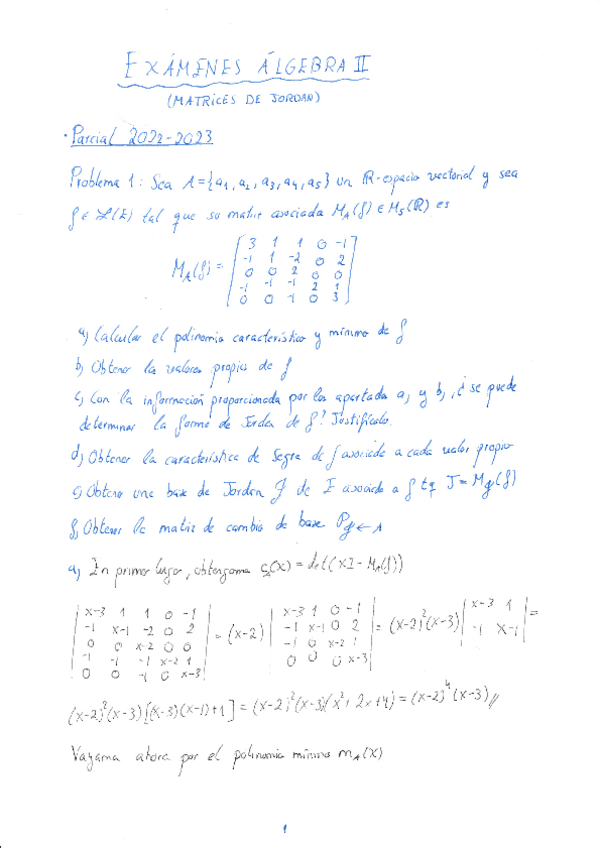 EXÁMENES ÁLGEBRA II
(MATRICES DE JORDAN)
· Parcial 2022-2023
Problema 1: Sea A={a1, a2, a3, a4, a5} un R-espacio vectorial y sea
f ∈ L(E) tal que su matriz asociada M_A(f) ∈ M5(R) es
M_A(f) = [3 1 1 0 -1
-1 1 -2 0 2
0 0 2 0 0
-1 -1 -1 2 1
0 0 -1 0 3]
a) Calcular el polinomio característico y mínimo de f
b) Obtener los valores propios de f
c) Con la información proporcionada por los apartados a) y b), ¿se puede
determinar la forma de Jordan de f? Justifícalo.
d) Obtener la característica de Segre de f asociada a cada valor propio
e) Obtener una base de Jordan J de E asociada a f tq J = M_J(f)
f) Obtener la matriz de cambio de base P_J←A
a) En primer lugar, obtengamos c_A(X) = det(XI - M_A(f))
|x-3 1 1 0 -1
-1 x-1 -2 0 2
0 0 x-2 0 0
-1 -1 -1 x-2 1
0 0 -1 0 x-3| = (x-2) |x-3 1 0 -1
-1 x-1 0 2
-1 0 x-2 1
0 0 0 x-3| = (x-2)²(x-3) |x-3 1
-1 x-1| =
(x-2)²(x-3)[(x-3)(x-1)+1] = (x-2)²(x-3)(x²+2x+4) = (x-2)⁴(x-3) //
Vayamos ahora por el polinomio mínimo m_A(X)
1